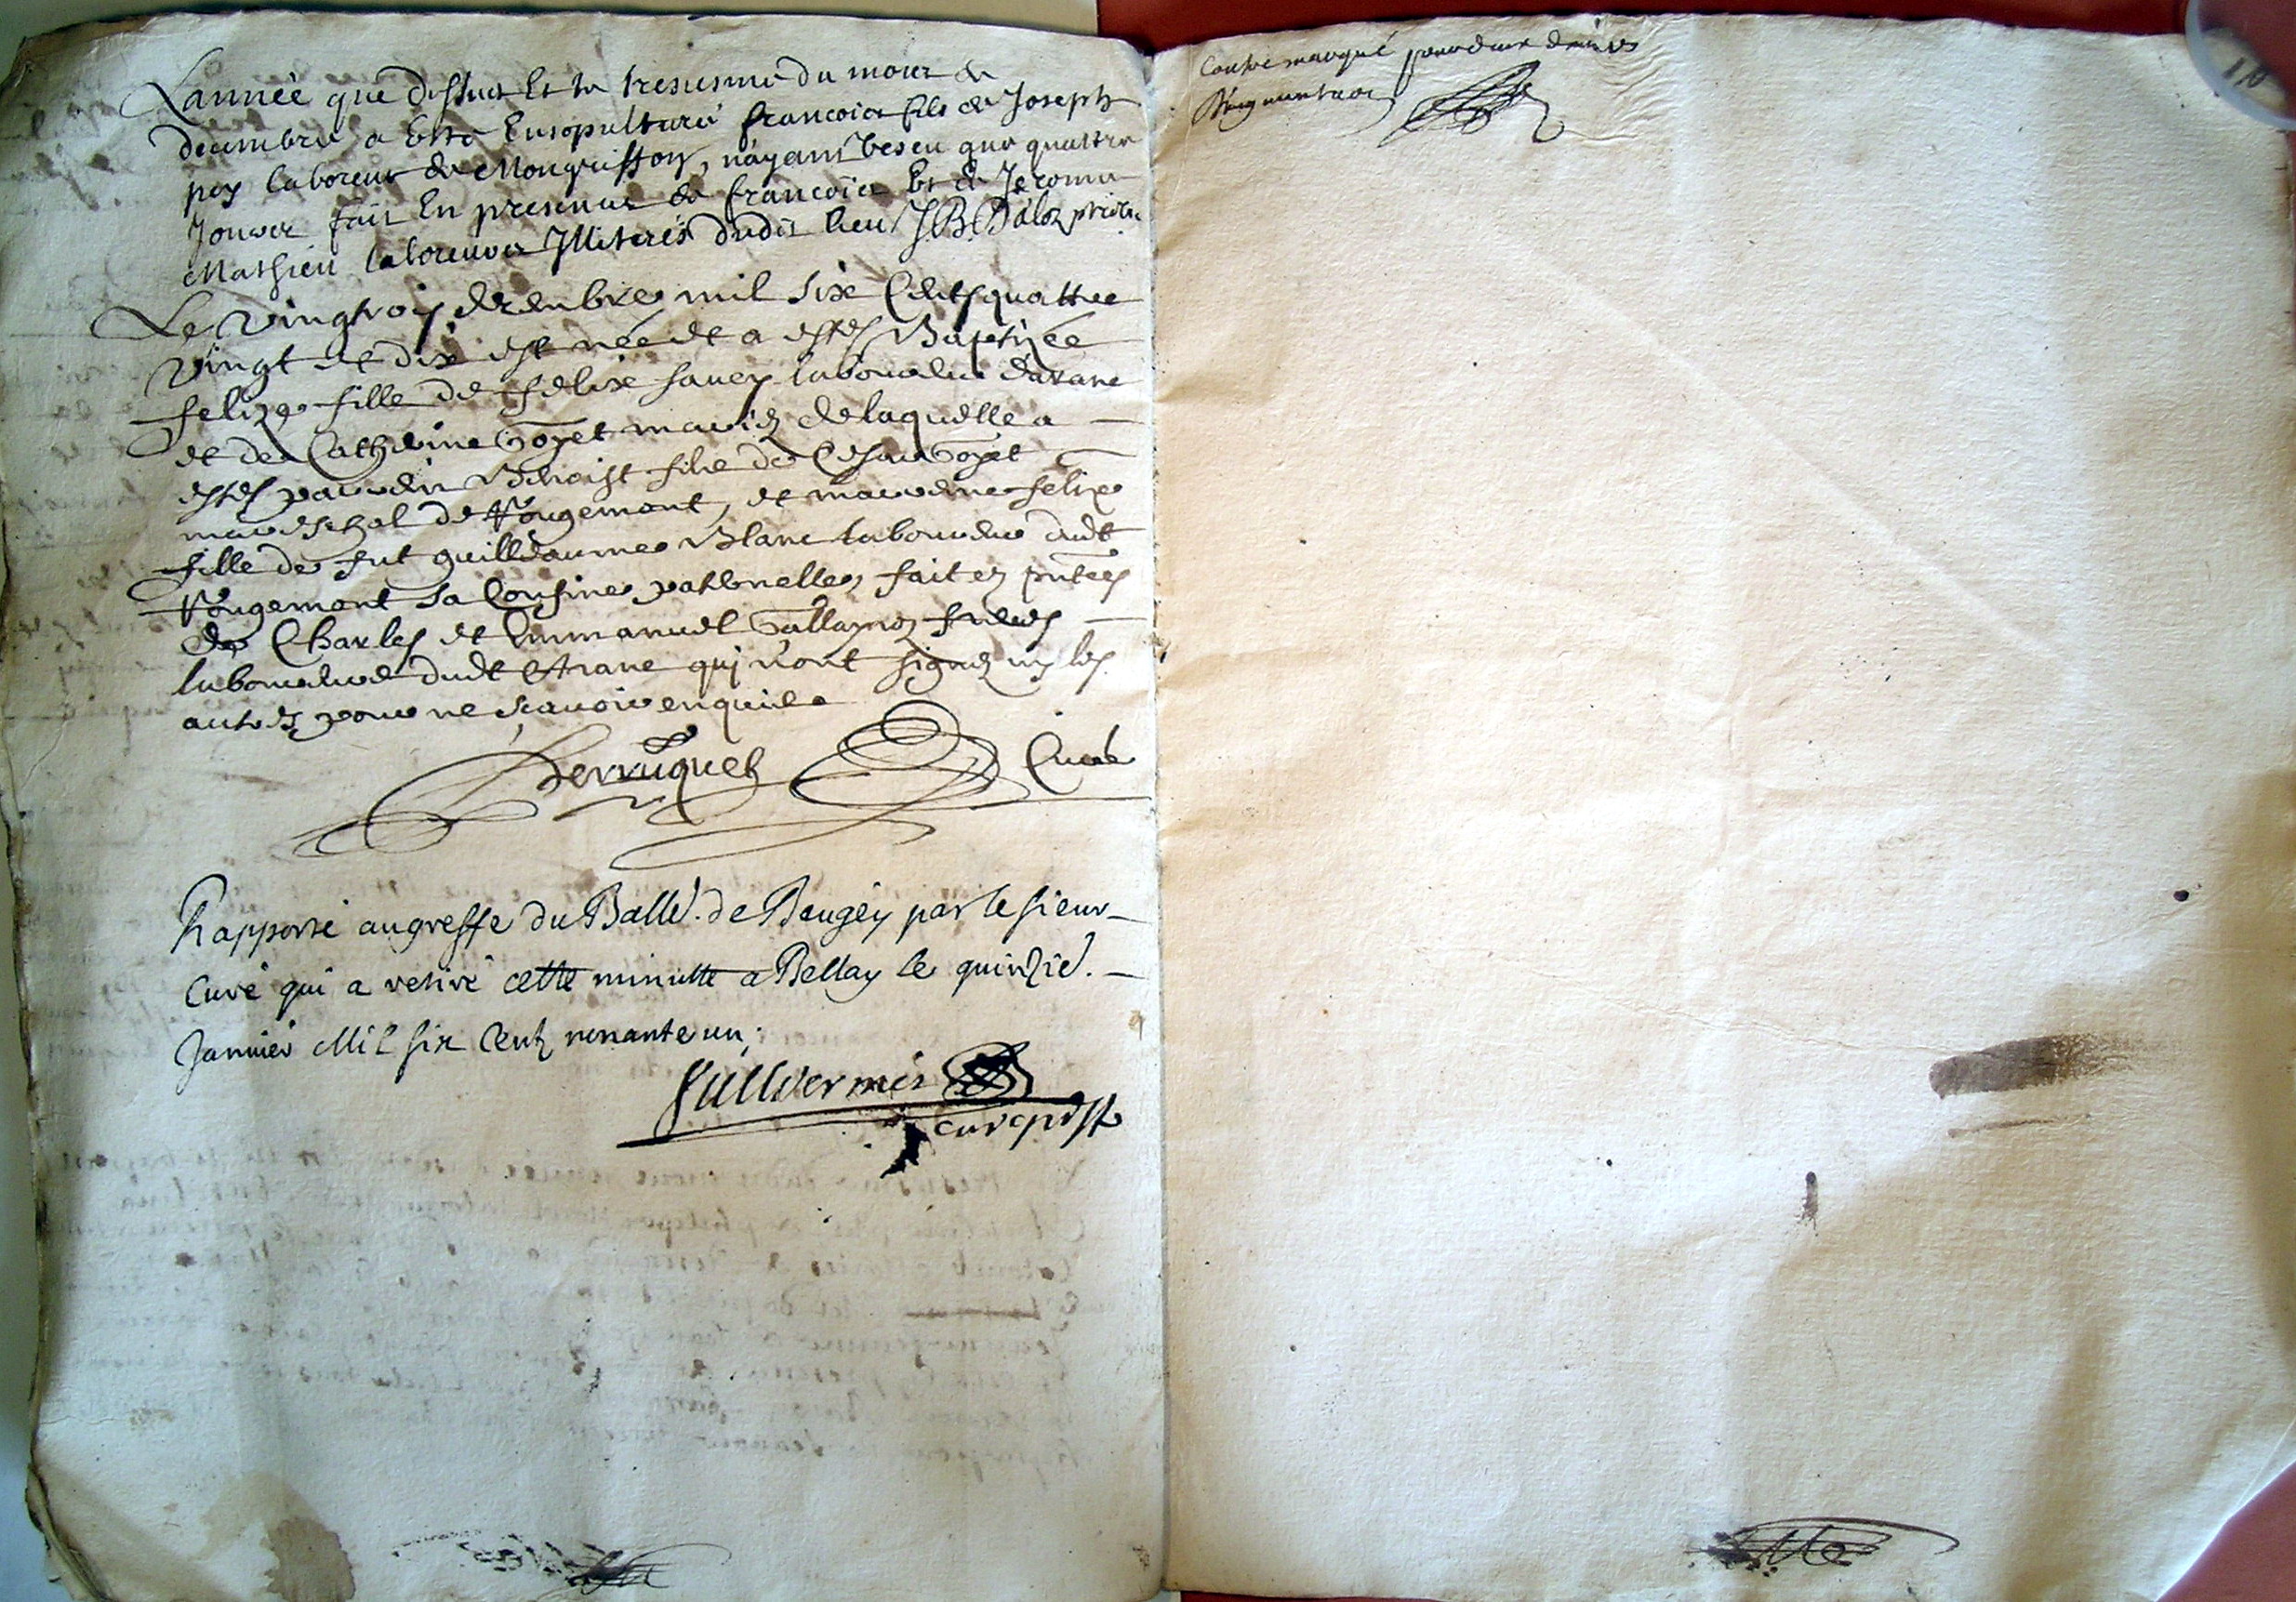 Lannée que dessus et le tresiesme du mois de
decembre a esté ensepulturé francois fils de Joseph
pey laboreur de Mongrisson, n'ayant vescu que quattre
Jours fait En presence de francois Et de Jerome
Mathieu laboreurs Illiterés dudit lieu J. B. Daloz prieur
Le vingtrois decembre mil Six Cents quattre
vingt et dix est née et a estés Baptizée
felize fille de felix laboureur darane
et de Catherine Goyet mariez de laquelle a
estés parrein Benoist filz de Cesar Goyet
mareschal de Rougemont, et marreine felize
fille de fut guilleaume Blanc laboureur dudt
Rougemont sa Cousine paternelle, fait ez pntces
de Charles et Emmanuel freres
laboureurs dudt Arane qui n'ont signez ny les
autres pour ne scavoir enquis
Perruquet Curé
Rapporté au greffe du Balle. de Beugey par le sieur
Curé qui a retiré cette minutte a Bellay le quinzie.
Janvier Mil six Cent nonante un.
Contremarqué pour deux deniers
d'augmentaon